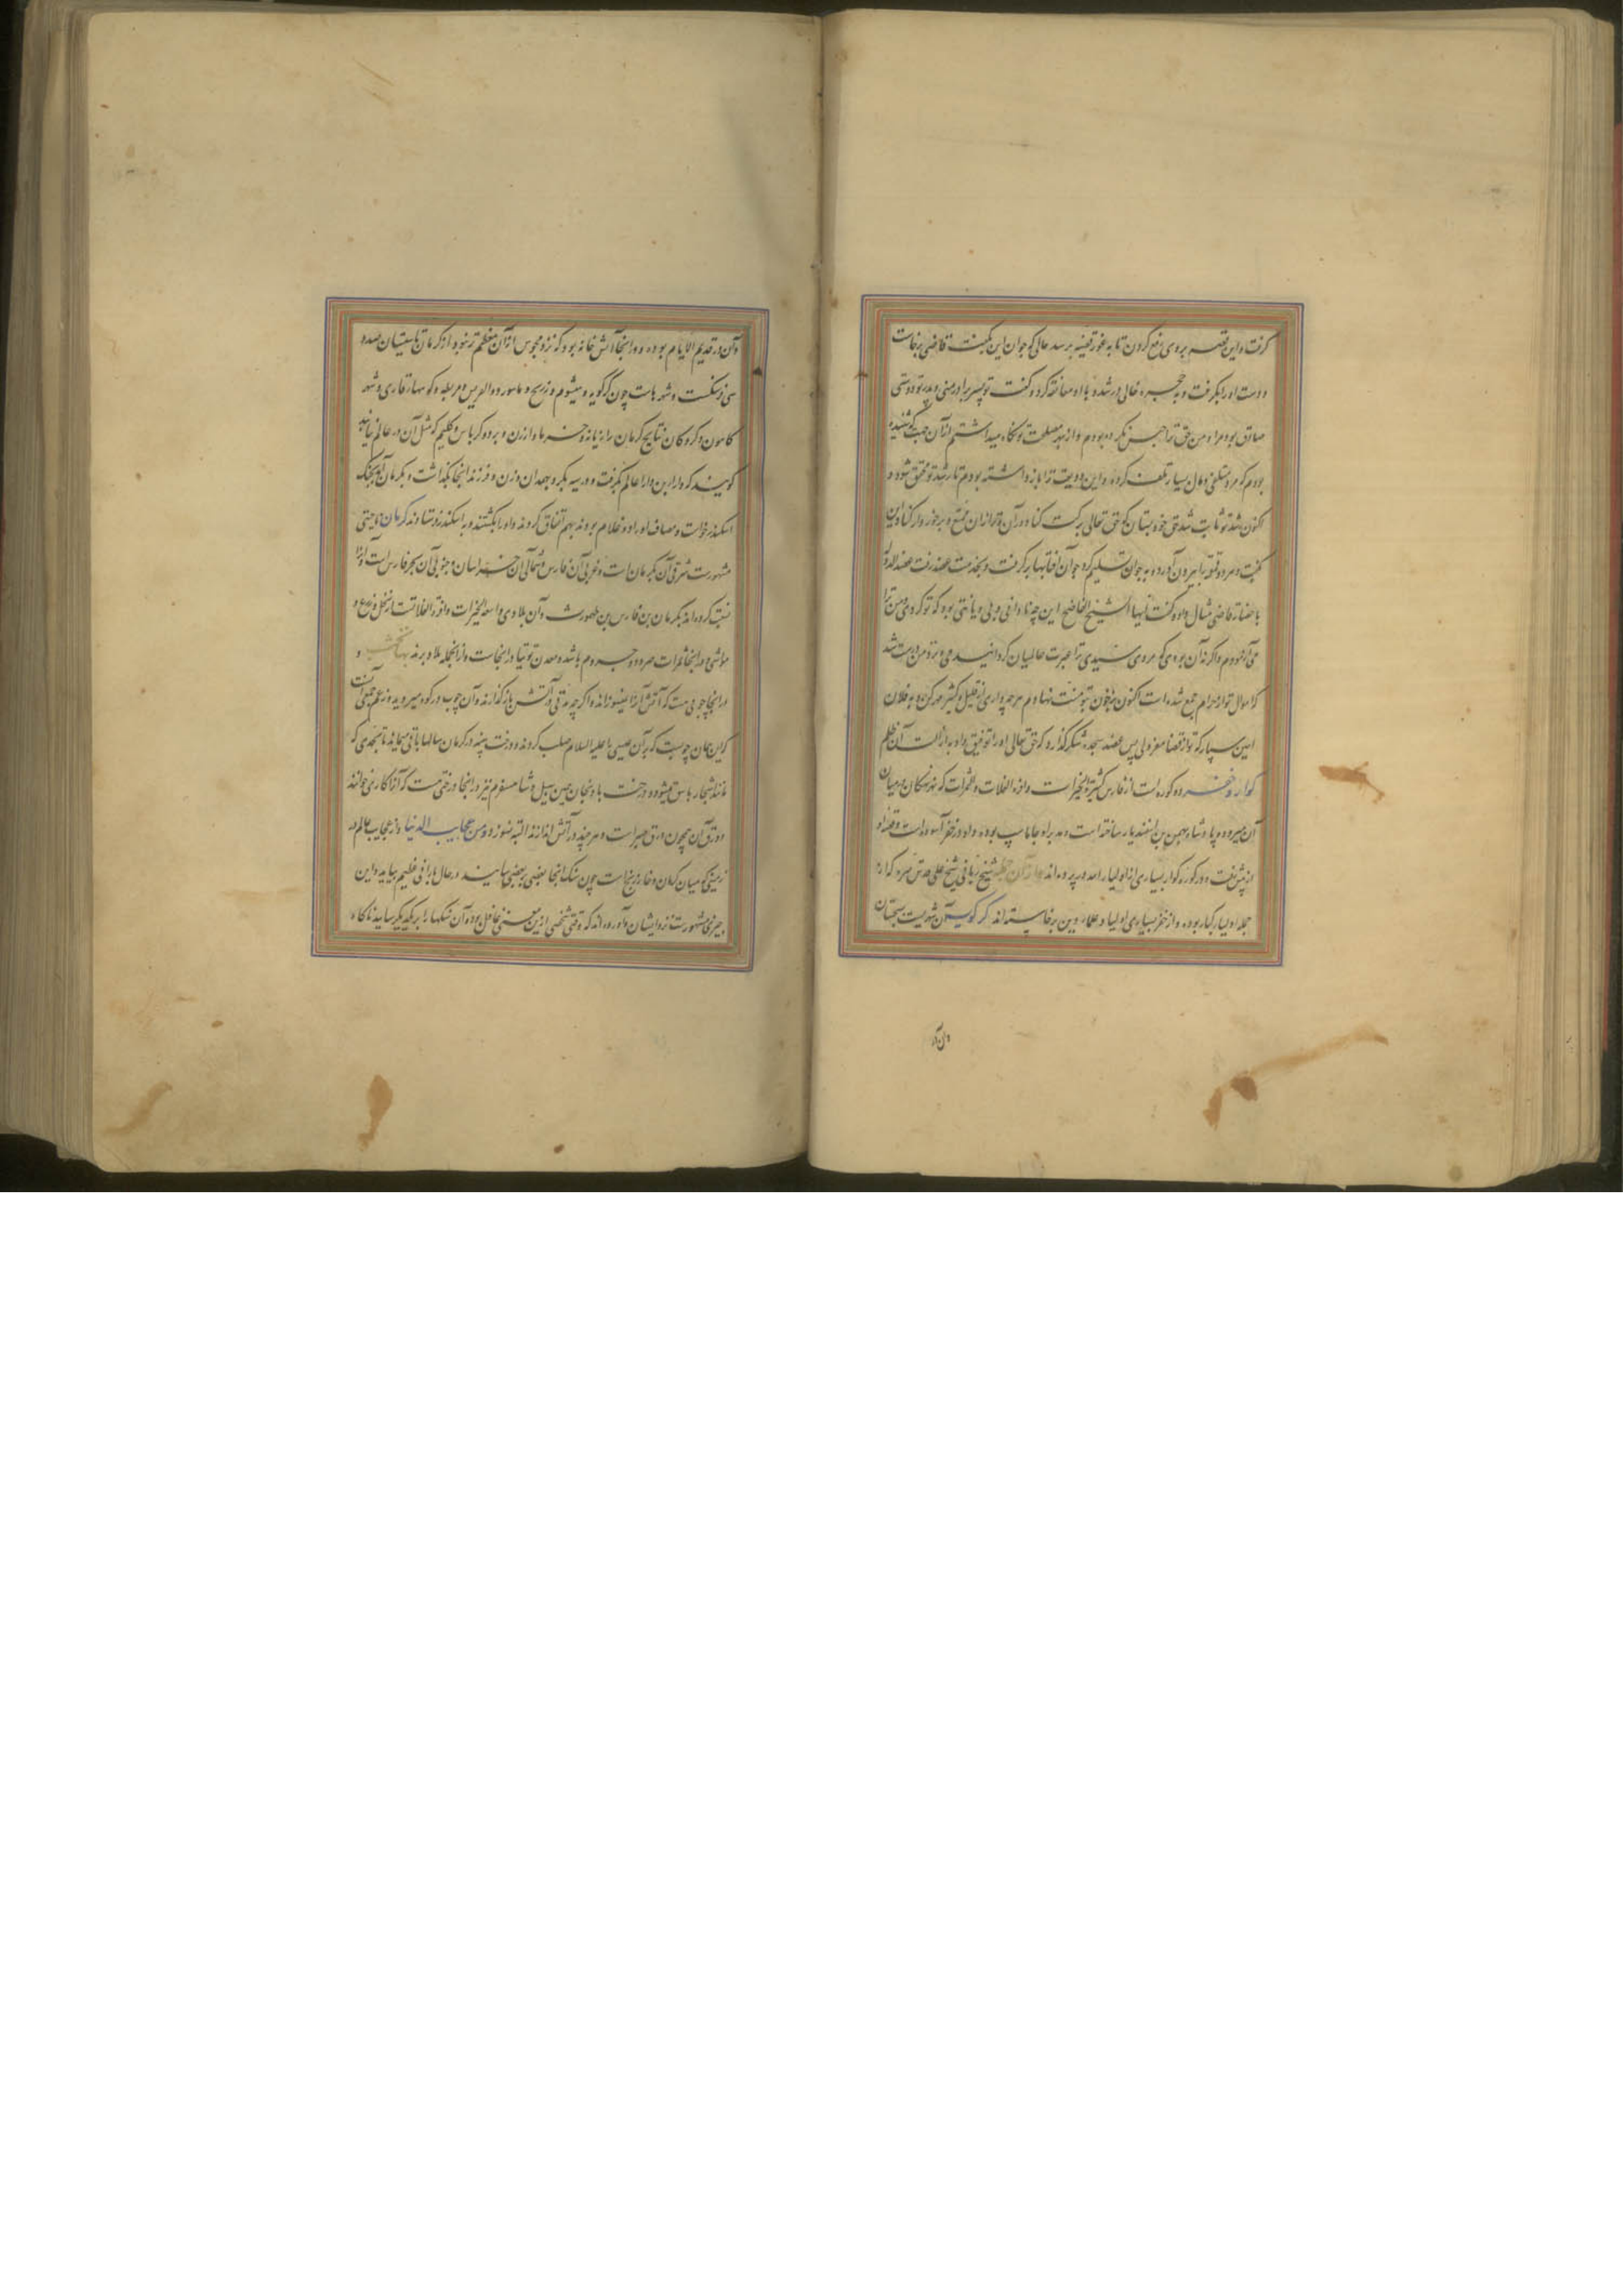 گرفت و این قصه بروی رفع کردن تا به غور قضیه برسد حالی که جوان این بگفت قاضی برخاست
و دست او را بگرفت و به حجره خالی در شد و با او معانقه کرد و گفت تو پسر برادر منی و پدر تو دوستی
صادق بود مرا و من حق ترا حبس نکرده بودم و از بهر مصلحت تو نگاه میداشتم از آن جهت که شنیده
بودم که مرد متلفی و مال بسیار تلف کرده و این ودیعت ترا باز داشته بودم تا رشد تو محقق شود و
اکنون رشد تو ثابت شد حق خود بستان که حق تعالی برکت کناد در آن و ترا از آن تمتع و برخوردار کناد این
بگفت و هر دو قمقمه را بیرون آورد و به جوان تسلیم کرد جوان آفتابها برگرفت و بخدمت عضد رفت عضد الدوله
باحضار قاضی مثال داد و گفت ایها الشیخ القاضی این چه نادانی و بی دیانتی بود که تو کردی و من ترا
می آزمودم و اگر نه آن بودی که مردی سپیدی ترا عبرت عالمیان گردانیدمی و بر من درست شد
که اموال تو از حرام جمع شده است اکنون بخون تو منت نهادم هر چه داری از قلیل و کثیر جمع کن و به فلان
امین سپار که تو از قضا معزولی پس عضد سجده شکر گذارد که حق تعالی او را توفیق داد به ازالت آن ظلم
کوار و خفر دو کوره است از فارس کثیرة الخیرات وافرة الغلات و الثمرات که نهر سکان در میان
آن میرود و پادشاه بهمن بن اسفندیار ساخته است و مدبر او جاماسپ بوده و او در خفر آسوده است و قصه او
از پیش رفت و در کوره کوار بسیاری از اولیاء الله در پرده اند و از آن جمله شیخ ربانی شیخ علی قدس سره که از
جمله اولیاء کبار بوده و از خفر بسیاری اولیا و علماء دین برخاسته اند کرکویه آن شهریست بسجستان
و آن در
و آن در قدیم الایام بوده و در انجا آتش خانه بود که نزد مجوس از آن معظم تر نبوده از کرمان تا سیستان صد و
سی فرسنگست و شهرهاست چون کرکویه و هیشوم و زرنج و
کامون و کروکان نتایج کرمان را زیانه و خرما و ارزن و برد و کرباس و گلیم که مثل آن در عالم نیابند
گویند که دارا بن دارا عالم بگرفت و مدینه بکر و همدان و زن و فرزند انجا بگذاشت و بکرمان آمد بجنگ
اسکندر خواست و مصاف او را دو غلام بودند بهم اتفاق کردند و او را بکشتند و به اسکندر فرستادند کرمان ناحیتی
مشهورست شرقی آن مکرانست و غربی آن فارس و شمالی آن خراسان و جنوبی آن بحر فارس است و آنرا
نسبت کرده اند بکرمان بن فارس بن طهمورث و آن بلادی واسعة الخیرات وافرة الغلاتست از نخل و زرع و
مواشی و در انجا ثمرات صرود و جروم باشد و معدن توتیا در انجاست و از انجا به بلاد برند و
در انجا چوبی هست که آتش آنرا نسوزاند و اگر چه مدتی در آتش باز گذارند و آن چوب در کوه میروید و زعم جمعی آنست
که این همان چوبیست که بر آن عیسی را علیه السلام صلب کردند و درخت پنبه در کرمان سالها باقی بماند تا بحدی که
مانند اشجار باسق میشود و درخت بادنجان همین سبیل و شاهسفرم نیز در انجا درختی هست که آنرا کادی خوانند
و ورق آن همچون ورق صبر است و هر چند در آتش اندازند البته نسوزد و من عجایب الدنیا و از عجایب عالم در
زمینی که میان کرمان و خار زیجاست چون سنگ انجا بعضی ببعضی بسایند در حال بارانی عظیم بیاید و این
چیزی مشهورست نزد ایشان و آورده اند که وقتی شخصی ازین معنی غافل بوده آن سنگها را بر یکدیگر ساییده ناگاه